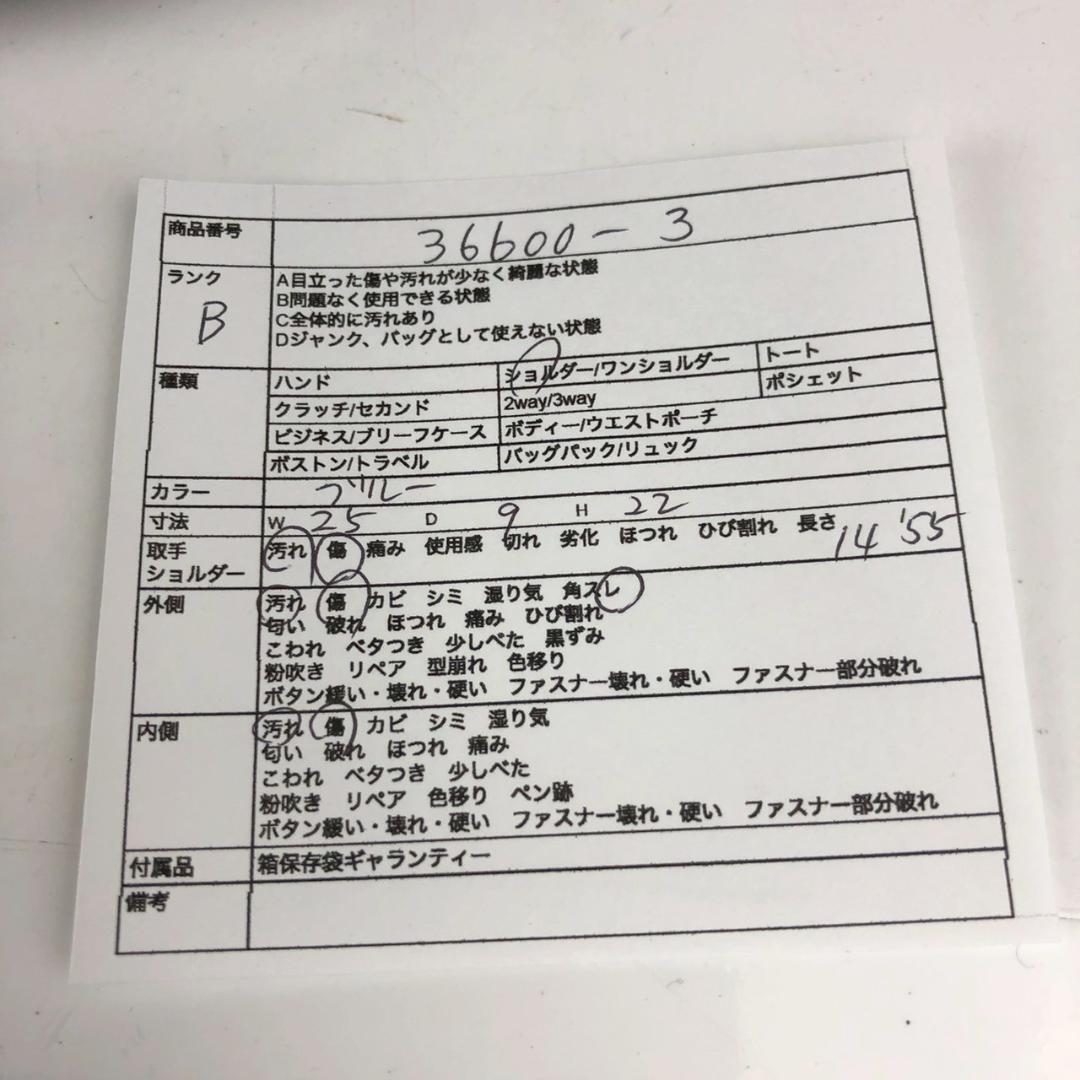 商品番号 36600-3
ランク B
A目立った傷や汚れが少なく綺麗な状態
B問題なく使用できる状態
C全体的に汚れあり
Dジャンク、バッグとして使えない状態
種類 ハンド ショルダー/ワンショルダー トート
クラッチ/セカンド 2way/3way ポシェット
ビジネス/ブリーフケース ボディー/ウエストポーチ
ボストン/トラベル バッグパック/リュック
カラー ブルー
寸法 W 25 D 9 H 22
取手 汚れ 傷 痛み 使用感 切れ 劣化 ほつれ ひび割れ 長さ 14 '55
ショルダー
外側 汚れ 傷 カビ シミ 湿り気 角スレ
匂い 破れ ほつれ 痛み ひび割れ
こわれ ベタつき 少しべた 黒ずみ
粉吹き リペア 型崩れ 色移り
ボタン緩い・壊れ・硬い ファスナー壊れ・硬い ファスナー部分破れ
内側 汚れ 傷 カビ シミ 湿り気
匂い 破れ ほつれ 痛み
こわれ ベタつき 少しべた
粉吹き リペア 色移り ペン跡
ボタン緩い・壊れ・硬い ファスナー壊れ・硬い ファスナー部分破れ
付属品 箱保存袋ギャランティー
備考